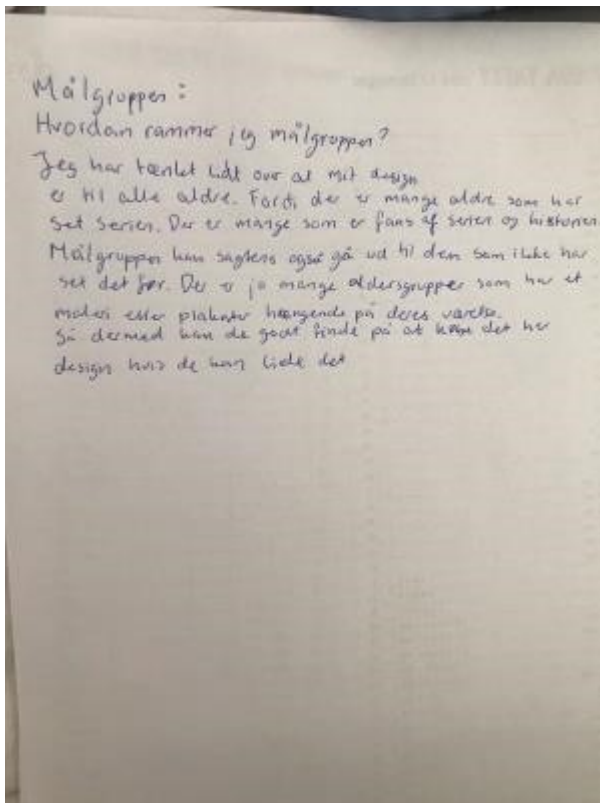 Målgruppen:
Hvordan rammer jeg målgruppen?
Jeg har tænket lidt over at mit design
er til alle aldre. Fordi der er mange aldre som har
set serien. Der er mange som er fans af serien og historien
Målgruppen kan sagtens også gå ud til dem som ikke har
set det før. Der er jo mange aldersgrupper som har et
maleri eller plakater hængende på deres værelse.
Så dermed kan de godt finde på at købe det her
design hvis de kan lide det